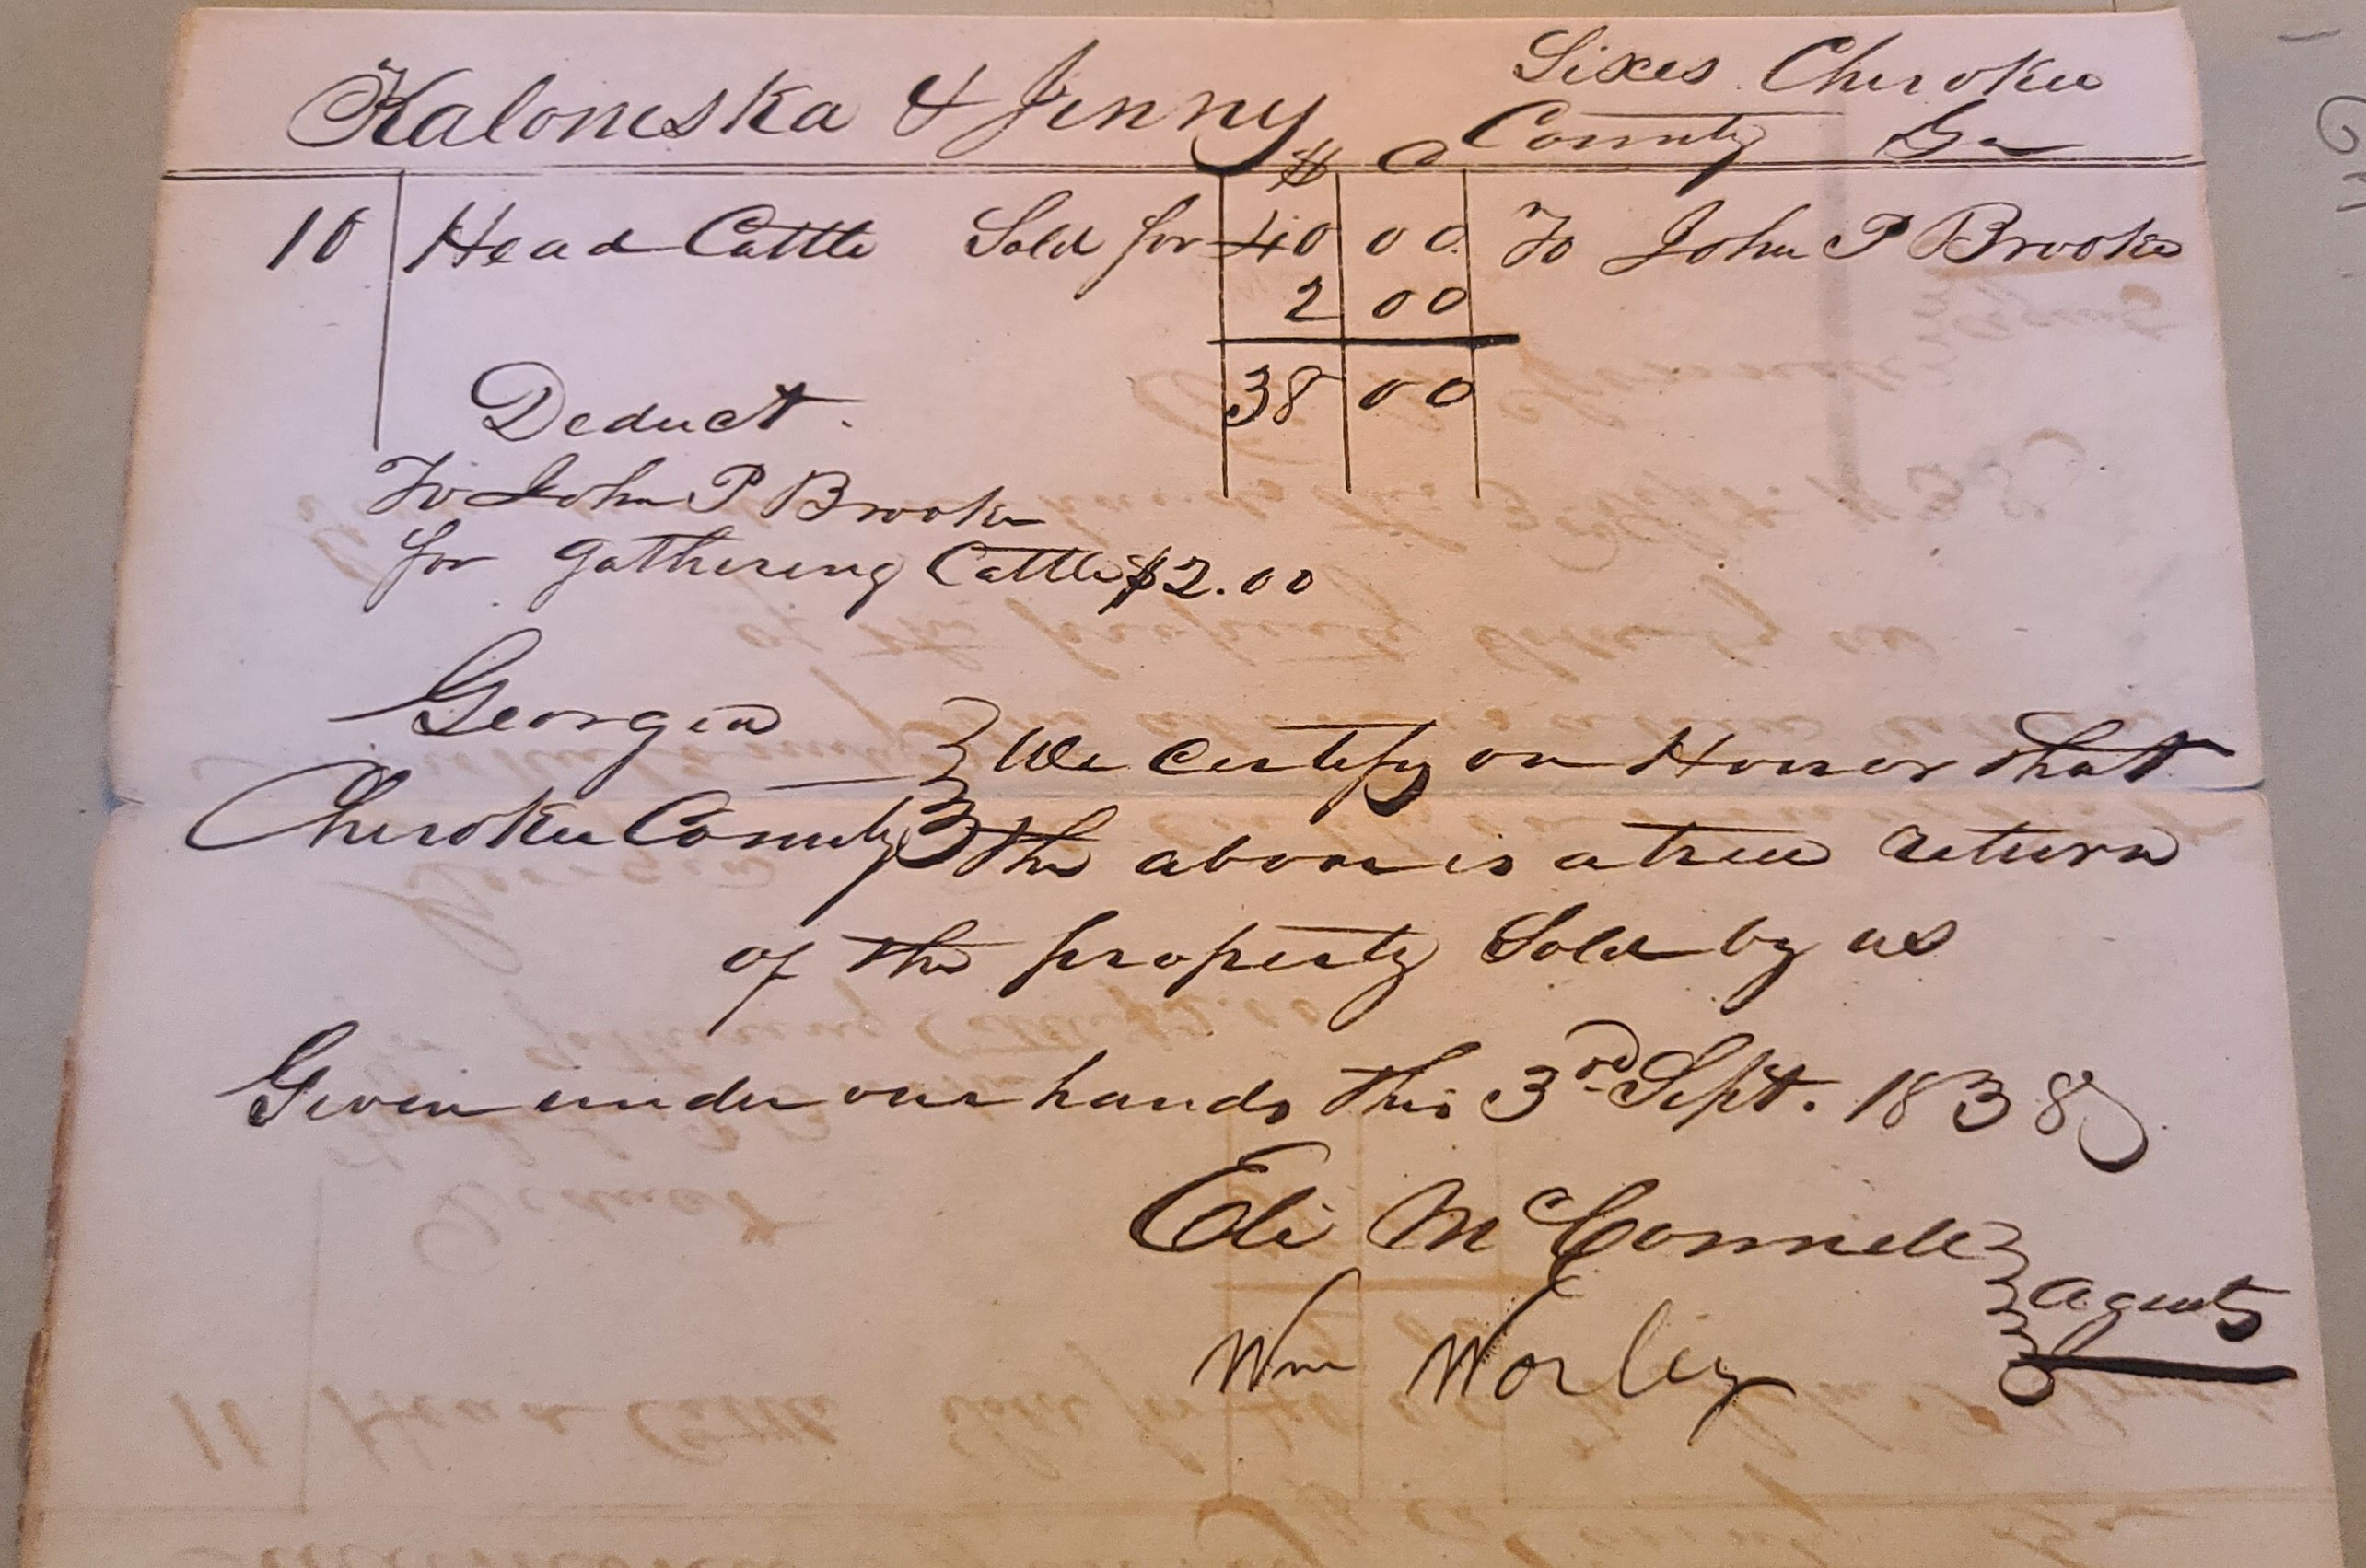 Kaloneska & Jenny Sixes Cherokee
County Ga
$ C
10 Head Cattle Sold for 40 00 To John P Brooke
2 00
38 00
Deduct.
To John P Brooke
for gathering Cattle $2.00
Georgia
Cherokee County We certify on Honor that
the above is a true return
of the property Sold by us
Given under our hands this 3rd Sept. 1838
Eli McConnell
Wm Worley agents